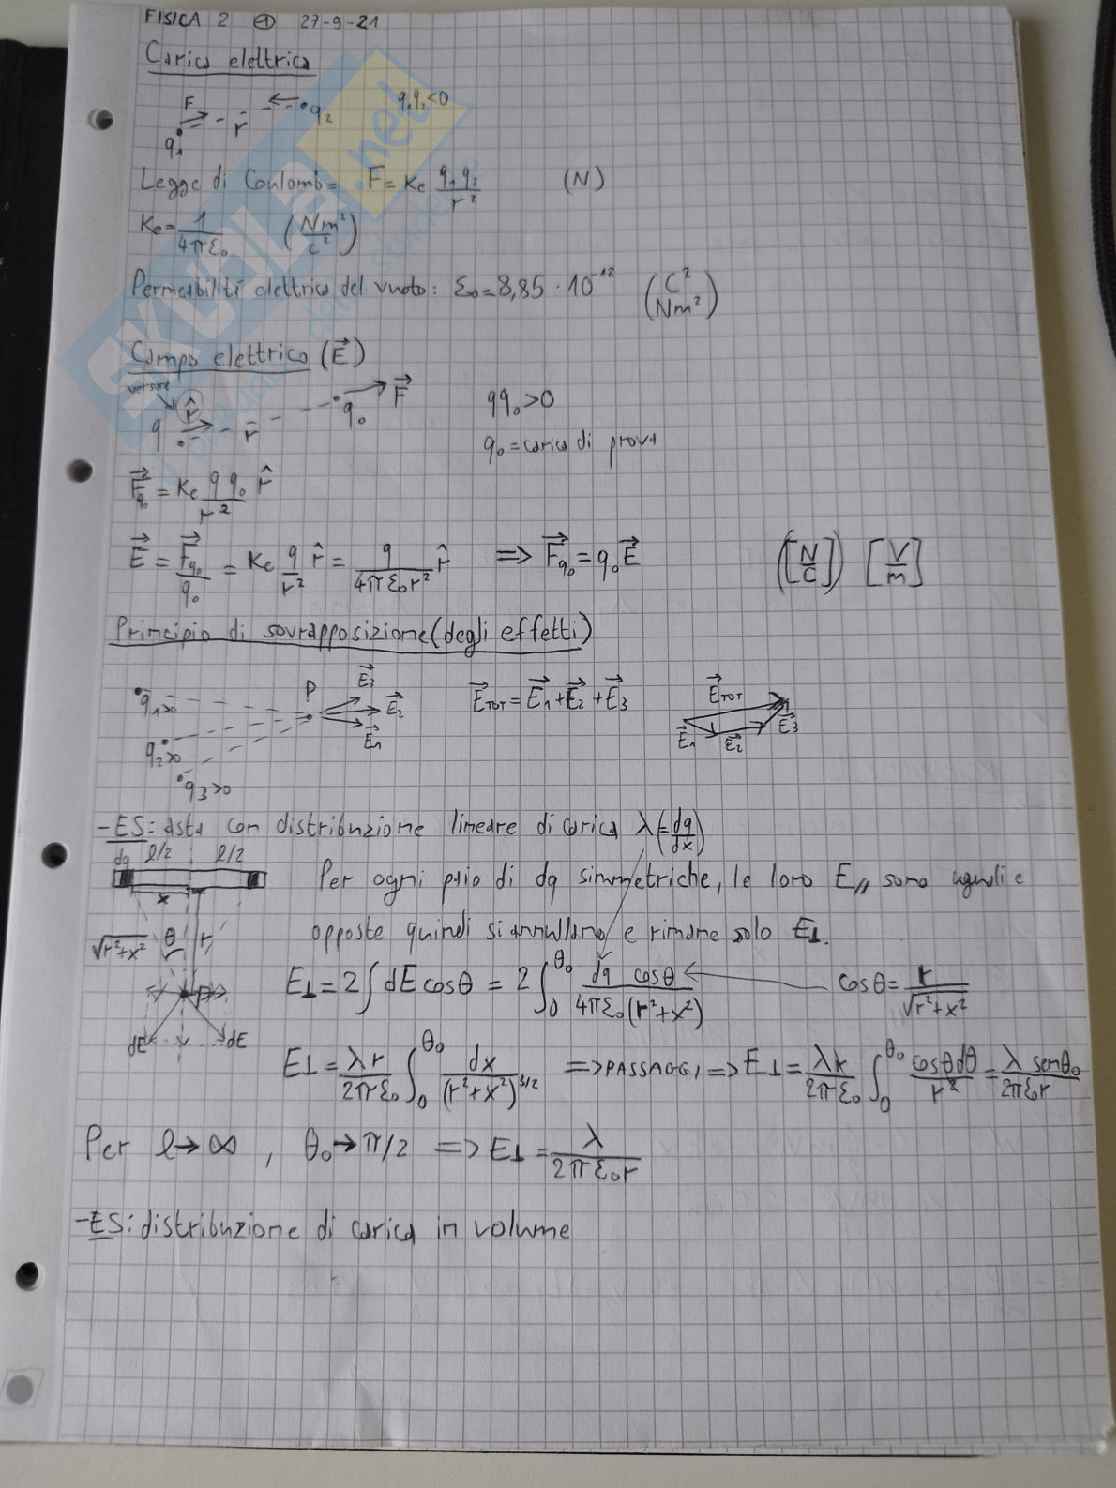 FISICA 2 ① 27-9-21
Carica elettrica
F r q₁ q₂ q₁q₂<0
Legge di Coulomb= F = Kc q₁q₂/r² (N)
Kc = 1/4πε₀ (Nm²/C²)
Permeabilità elettrica del vuoto: ε₀ = 8,85 · 10⁻¹² (C²/Nm²)
Campo elettrico (E⃗)
versore
q r̂ r q₀ F⃗ qq₀>0
q₀ = carica di prova
F⃗q₀ = Kc qq₀/r² r̂
E⃗ = F⃗q₀/q₀ = Kc q/r² r̂ = q/4πε₀r² r̂ => F⃗q₀ = q₀E⃗ ([N/C]) [V/m]
Principio di sovrapposizione (degli effetti)
q₁>0 P E⃗₃ E⃗₂ E⃗₁ E⃗TOT = E⃗₁+E⃗₂+E⃗₃ E⃗TOT E⃗₁ E⃗₂ E⃗₃
q₂>0
q₃>0
-ES: asta con distribuzione lineare di carica λ(=dq/dx)
dq l/2 l/2
x
Per ogni paio di dq simmetriche, le loro E// sono uguali e
opposte quindi si annullano e rimane solo E⊥.
√r²+x² θ r
P
dE dE
E⊥ = 2∫dE cosθ = 2∫₀^θ₀ dq cosθ/4πε₀(r²+x²) cosθ = r/√r²+x²
E⊥ = λr/2πε₀ ∫₀^θ₀ dx/(r²+x²)^3/2 => PASSAGGI => E⊥ = λr/2πε₀ ∫₀^θ₀ cosθdθ/r² = λ senθ₀/2πε₀r
Per l→∞, θ₀→π/2 => E⊥ = λ/2πε₀r
-ES: distribuzione di carica in volume